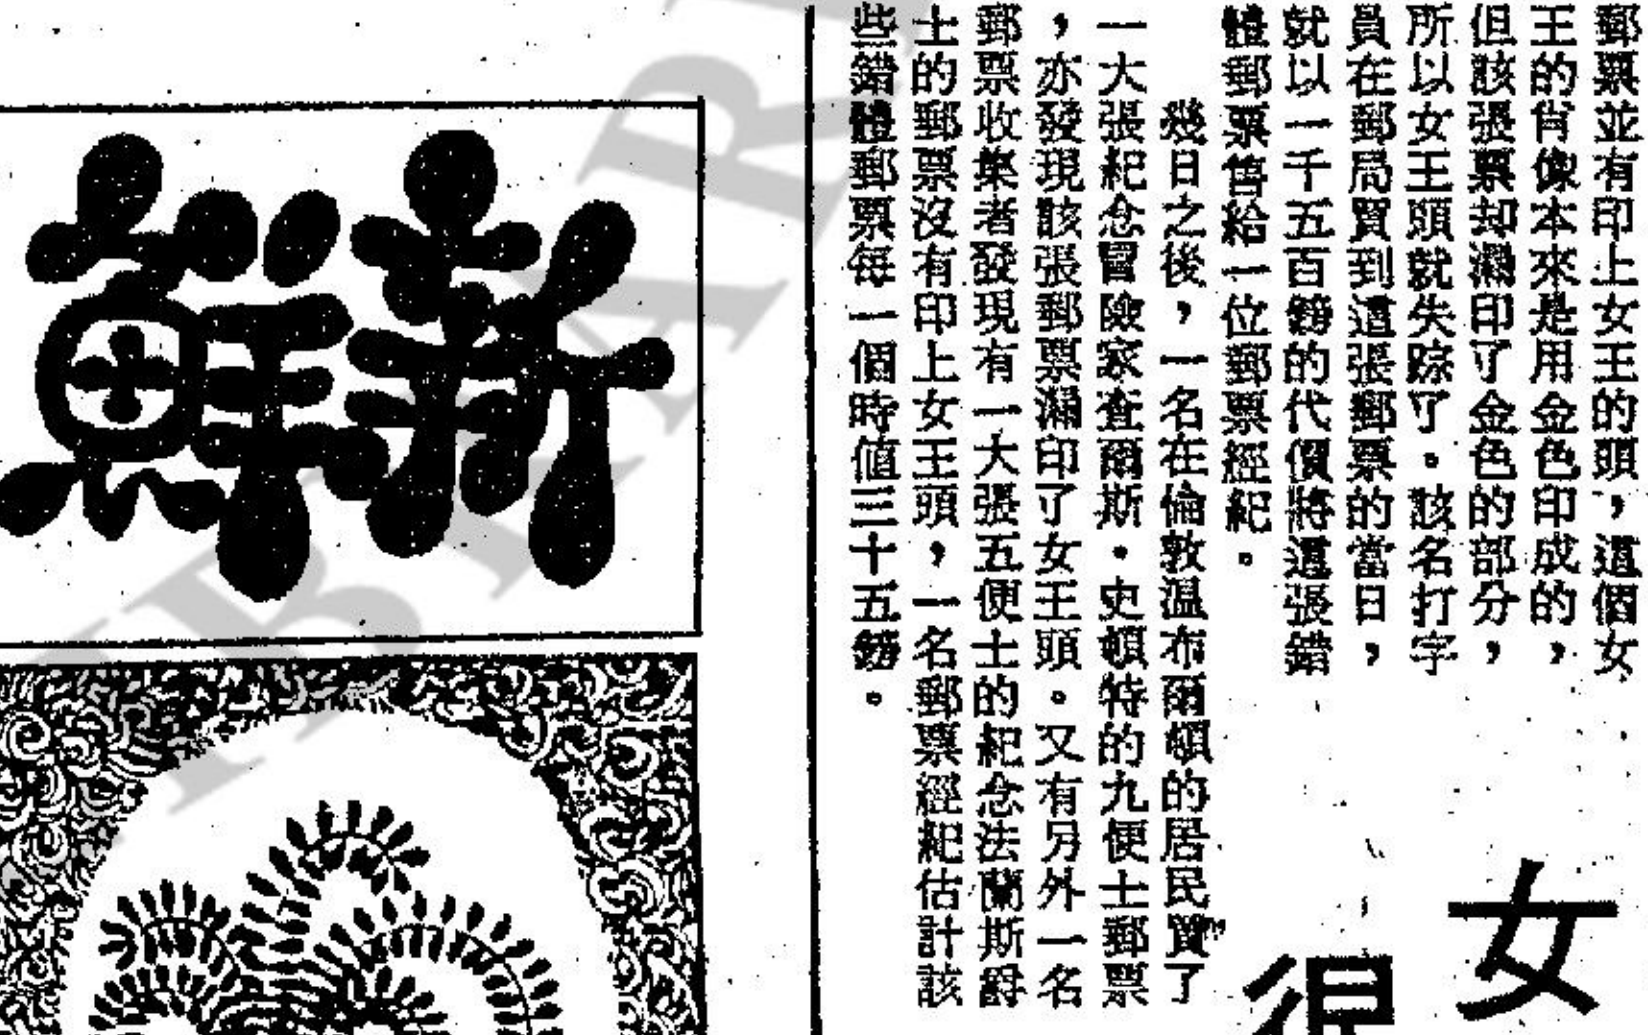 郵票並有印上女王的頭，這個女
王的肖像本來是用金色印成的，
但該張票却漏印了金色的部分，
所以女王頭就失踪了。該名打字
員在郵局買到這張郵票的當日，
就以一千五百鎊的代價將這張錯
體郵票售給一位郵票經紀。
幾日之後，一名在倫敦温布爾頓的居民買了
一大張紀念冒險家查爾斯・史頓特的九便士郵票
，亦發現該張郵票漏印了女王頭。又有另外一名
郵票收集者發現有一大張五便士的紀念法蘭斯爵
士的郵票沒有印上女王頭，一名郵票經紀估計該
些錯體郵票每一個時值三十五鎊。
女
很
新鮮